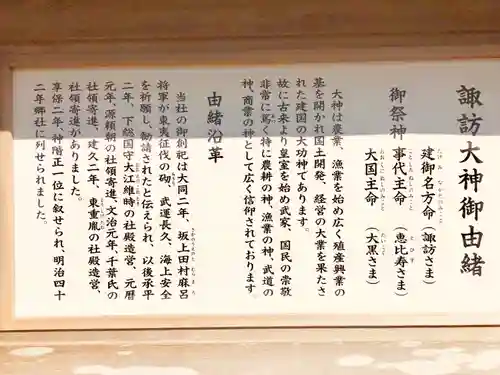 諏訪大神御由緒
御祭神
建御名方命(諏訪さま)
事代主命(恵比寿さま)
大国主命(大黒さま)
大神は農業、漁業を始め広く殖産興業の
基を開かれ国土開発、経営の大業を果たさ
れた建国の大功神であります。
故に古来より皇室を始め武家、国民の崇敬
非常に篤く特に農耕の神、漁業の神、武道の
神、商業の神として広く信仰されております。
由緒沿革
当社の御創祀は大同二年、坂上田村麻呂
将軍が東夷征伐の砌、武運長久、海上安全
を祈願し、勧請されたと伝えられ、以後承平
二年、下総国守大江維時の社殿造営、元暦
元年、源頼朝の社領寄進、文治元年、千葉氏の
社領寄進、建久二年、東重胤の社殿造営、
社領寄進がありました。
享保二年、神階正一位に叙せられ、明治四十
二年郷社に列せられました。